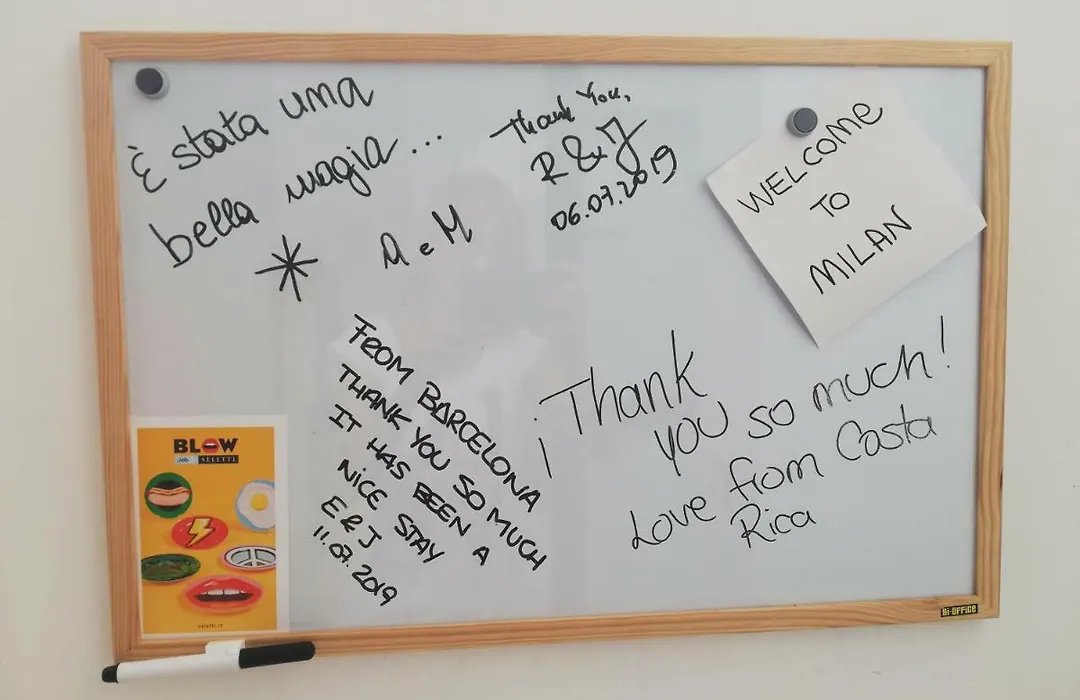 È stata una
bella magia...
M e M
Thank You,
R & J
06.07.2019
WELCOME
TO
MILAN
FROM BARCELONA
THANK YOU SO MUCH
IT HAS BEEN A
NICE STAY
E & J
11.07.2019
¡Thank
you so much!
Love from Costa
Rica
BLOW
SELETTI
Bi-OFFiCE